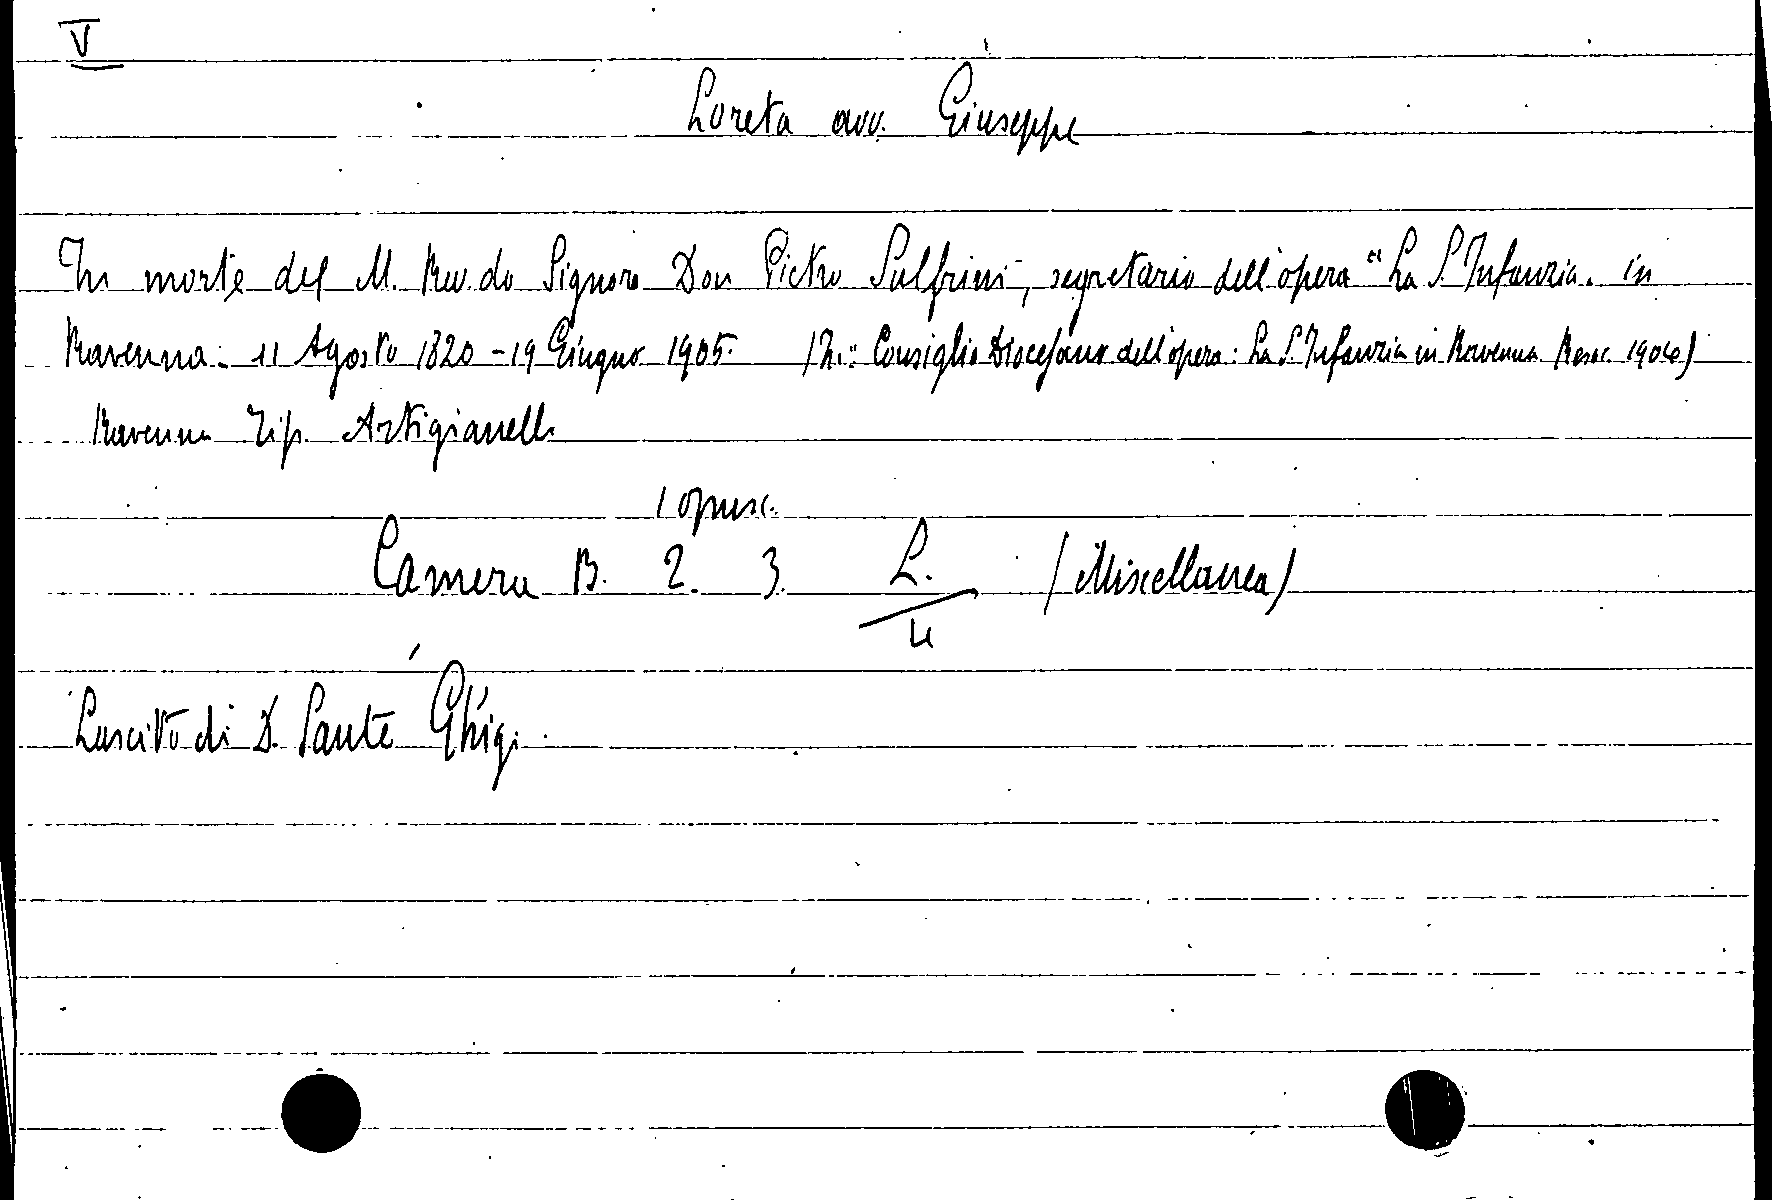 V
Loreta avv. Giuseppe
In morte del M. Rev.do Signore Don Pietro Solfrini, segretario dell'opera "La S. Infanzia. in
Ravenna. 11 Agosto 1820 - 19 Giugno 1905. (In: Consiglio Diocesano dell'opera: La S. Infanzia in Ravenna. Resoc. 1904)
Ravenna Tip. Artigianelli
1 opusc.
Camera B. 2. 3. L. (Miscellanea)
4
Lascito di D. Sante Ghigi.